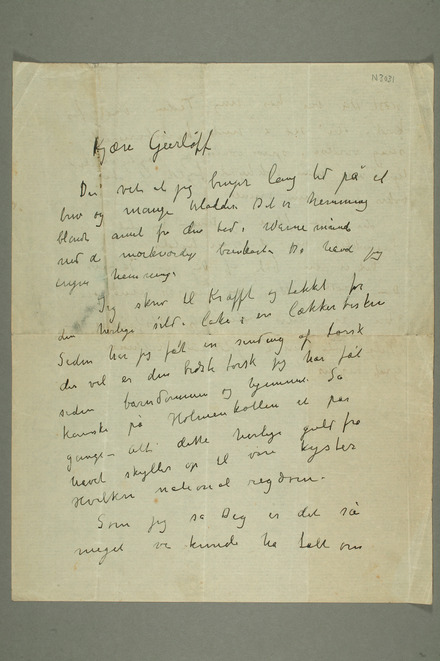 N 3031
Kjære Gierløff
Du vet at jeg bruger lang tid på et
brev og mange kladder. Det er hemning
blandt annet fra din tid.
med de mærkværdige Da havde jeg
ingen hemninger
Jeg skrev til Krafft og takket for
den herlige sild. lake; en lækker bisken
Siden har jeg fåt en sending af torsk
det vel er den bedste torsk jeg har fåt
siden barndommen og hjemme. Så
kanske på Holmenkollen et par
gange – alt dette herlige guld fra
havet skylles op til vore kyster
Hvilken national rigdom.
Som jeg sa Deg er det så
meget vi kunde ha talt om